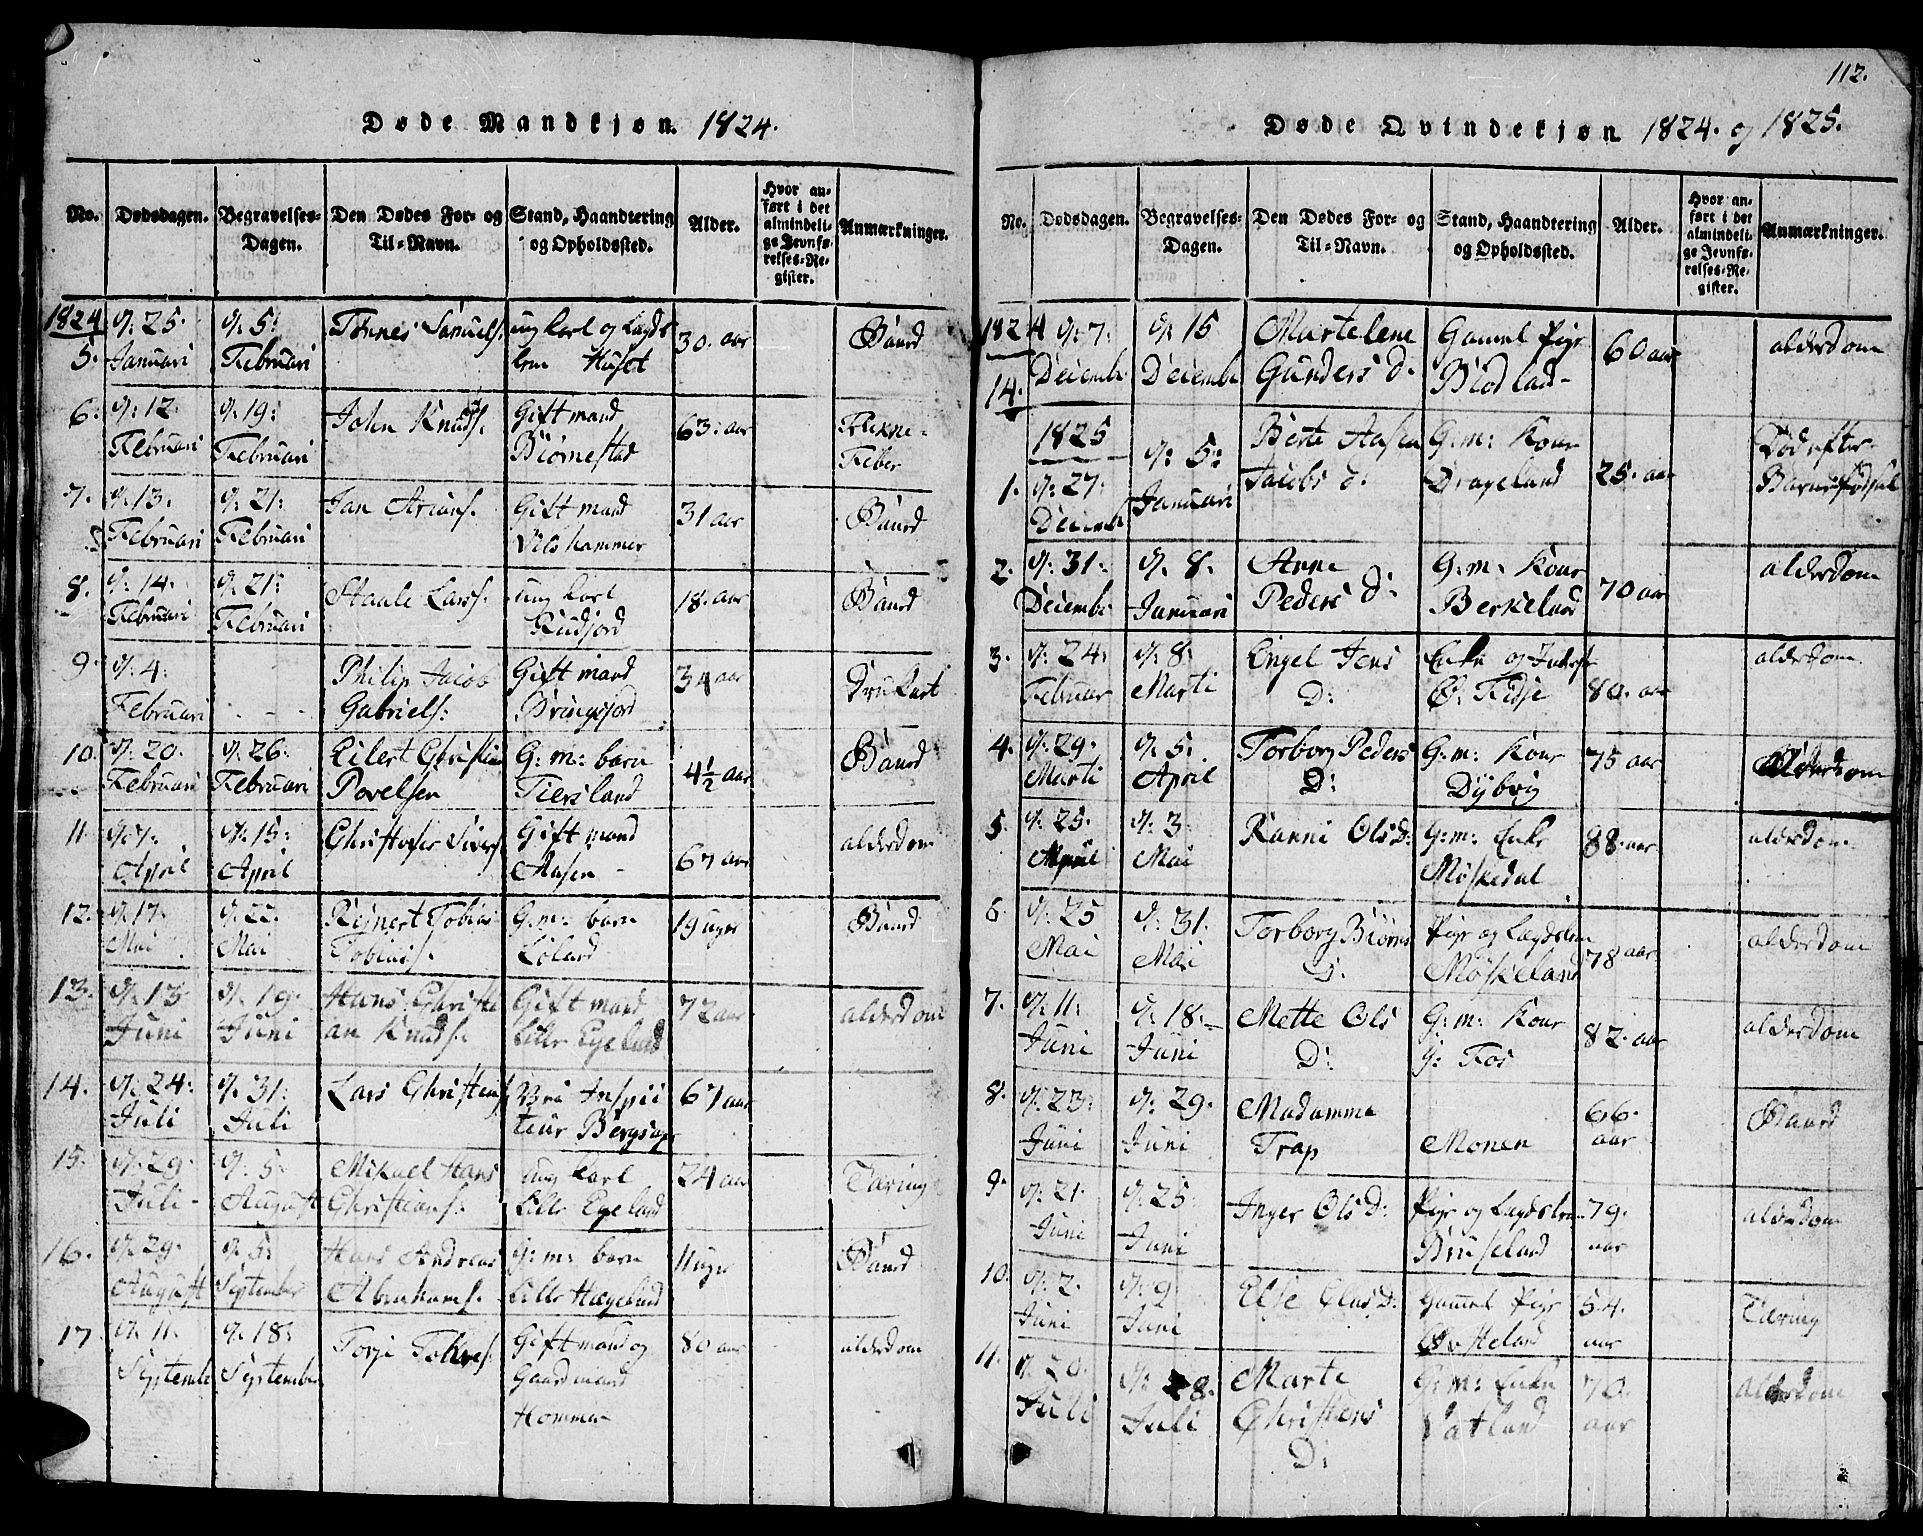 Døde Mandkjøn. 1824.
No. Dødsdagen. Begravelses-Dagen. Den Dødes For- og Til-Navn. Stand, Haandtering og Opholdssted. Alder. Hvor anført i det almindelige Jevnførelses-Register. Anmærkninger.
1824
5. d: 25. Januari d: 5: Februari Tønnes Samuels. ung karl og Lægds lem Huset 30. aar Baard
6. d: 12. Februari d: 19: Februari John Knuds. Gift mand Biørnestad 63: aar Flekne-Feber
7. d: 13. Februari d: 21: Februari Jan Arians. Gift mand Vilshammer 31 aar Baard
8. d: 14. Februari d: 21: Februari Staale Lars. ung karl Rudjord 18. aar Baard
9. d: 4: Februari - - - Philip Jacob Gabriels: Gift mand Bringsjord 34 aar Drukart
10. d: 20. Februari d: 26: Februari Eilert Christian Povelsen G: m: barn Tiersland 4½ aar Baard
11. d: 7. April d: 15: April Christofer Sivers. Gift mand Aasen 67 aar alderdom
12. d: 17. Mai d: 22: Mai Rejnert Tobias Tobias. G: m: barn Løland 19 uger Baard
13. d: 13 Juni d: 19: Juni Hans Christian Knuds. Gift mand Lille Egeland 72 aar alderdom
14. d: 24: Juli d: 31: Juli Lars Christens. Bergsager 67 aar
15. d: 29. Juli d: 5. August Mikael Hans Christians. ung karl Lille Egeland 24 aar Tæring
16. d: 29. August d: 5: September Hans Andreas Abrahams. G: m: barn Lille Hægeland 11 uger Baard
17. d: 11. Septemb d: 18: September Torje Tollevs. Gift mand og Gaardmand Hommen 80 aar alderdom
112.
Døde Qvindekjøn 1824. og 1825.
No. Dødsdagen. Begravelses-Dagen. Den Dødes For- og Til-Navn. Stand, Haandtering og Opholdssted. Alder. Hvor anført i det almindelige Jevnførelses-Register. Anmærkninger.
1824
14. d: 7: Decemb d: 15 Decemb Martelene Gunders d. Gamel Pige Biødland 60 aar alderdom
1825
1. d: 27: Decemb d: 5: Januari Berte Aasen Jacobs d: G: m: Kone Drageland 25. aar Død efter Barnefødsel
2. d: 31: Decemb d: 8. Januari Anne Peders D: G: m: Kone Berkeland 70 aar alderdom
3. d: 24: Februar d: 8: Marti Engel Jens D: Enke og Fidje 80. aar alderdom
4. d: 29: Marti d: 5. April Torborg Peders D: G: m: Kone Dybvig 75 aar alderdom
5. d: 25. April d: 3. Mai Ranni Ols D: G: m: Enke Møskedal 88. aar alderdom
6. d: 25 Mai d: 31. Mai Torborg Biørns D. Pige og Lægdslem Møskeland 78 aar alderdom
7. d: 11: Juni d: 18. Juni Mette Ols D: G: m: Kone G: Fos 82. aar alderdom
8. d: 23: Juni d: 29. Juni Madamme Trap Monen 66. aar Baard
9. d: 21. Juni d: 25 Juni Inger Ols D: Pige og Lægdslem Bruseland 79. aar alderdom
10. d: 2. Juni d: 9 Juni Else Olas D: Gamel Pige 54. aar Tæring
11. d: 20. Juli d: 28. Juli Marte Christens D: G: m: Enke Vatland 70. aar alderdom